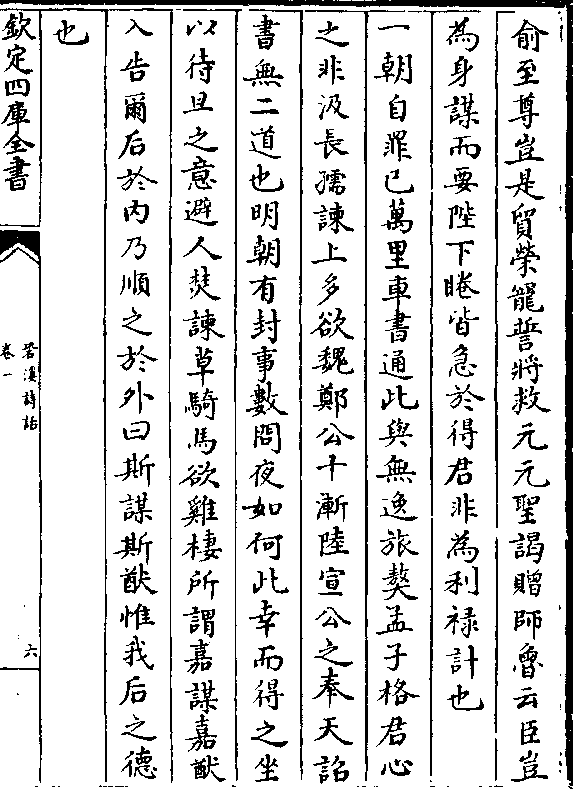 俞至尊豈是貿榮寵誓將救元元聖謁贈師魯云臣豈
為身謀而要陛下睠皆急於得君非為利祿計也
一朝自罪已萬里車書通此與無逸旅獒孟子格君心
之非汲長孺諫上多欲魏鄭公十漸陸宣公之奉天詔
書無二道也明朝有封事數問夜如何此幸而得之坐
以待旦之意避人焚諫草騎馬欲雞棲所謂嘉謀嘉猷
入告爾后於內乃順之於外曰斯謀斯猷惟我后之德
也
欽定四庫全書
䂬溪詩話
卷一
六